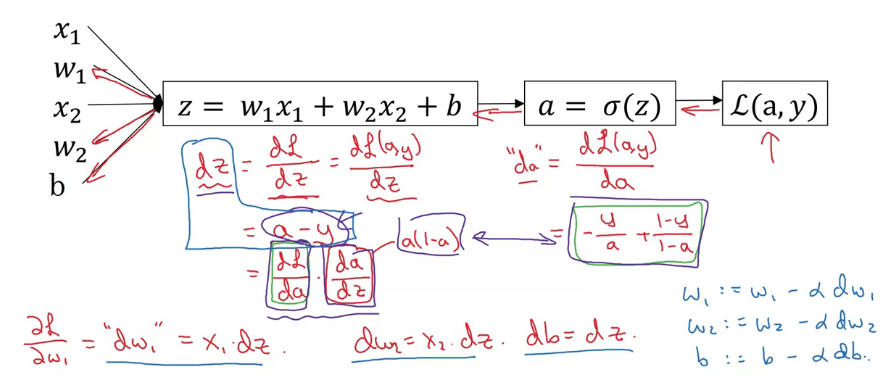 x₁
w₁
x₂
w₂
b
z = w₁x₁ + w₂x₂ + b
a = σ(z)
ℒ(a, y)
dz = dℒ/dz = dℒ(a,y)/dz
"da" = dℒ(a,y)/da
= a - y
a(1-a)
= -y/a + (1-y)/(1-a)
= dℒ/da · da/dz
∂ℒ/∂w₁ = "dw₁" = x₁ · dz.
dw₂ = x₂ · dz.
db = dz.
w₁ := w₁ - α dw₁
w₂ := w₂ - α dw₂
b := b - α db.